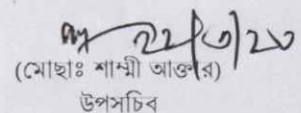 ২২/৩/২৩
(মোছাঃ শাম্মী আক্তার)
উপসচিব